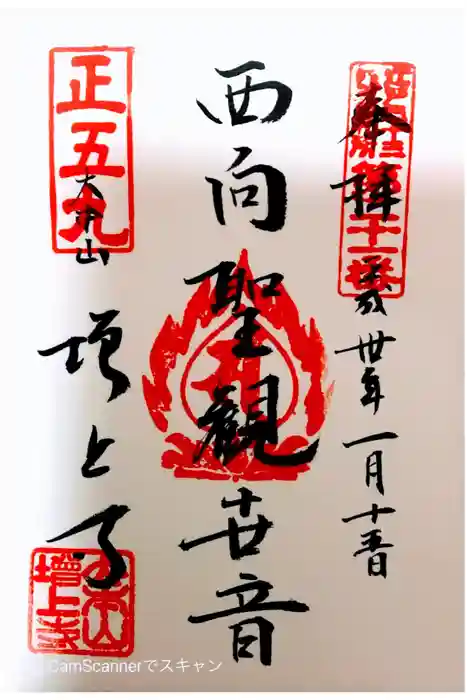 奉拝
平成丗年一月十五日
西向聖觀世音
正五九
大本山
増上寺
増上寺
CamScannerでスキャン